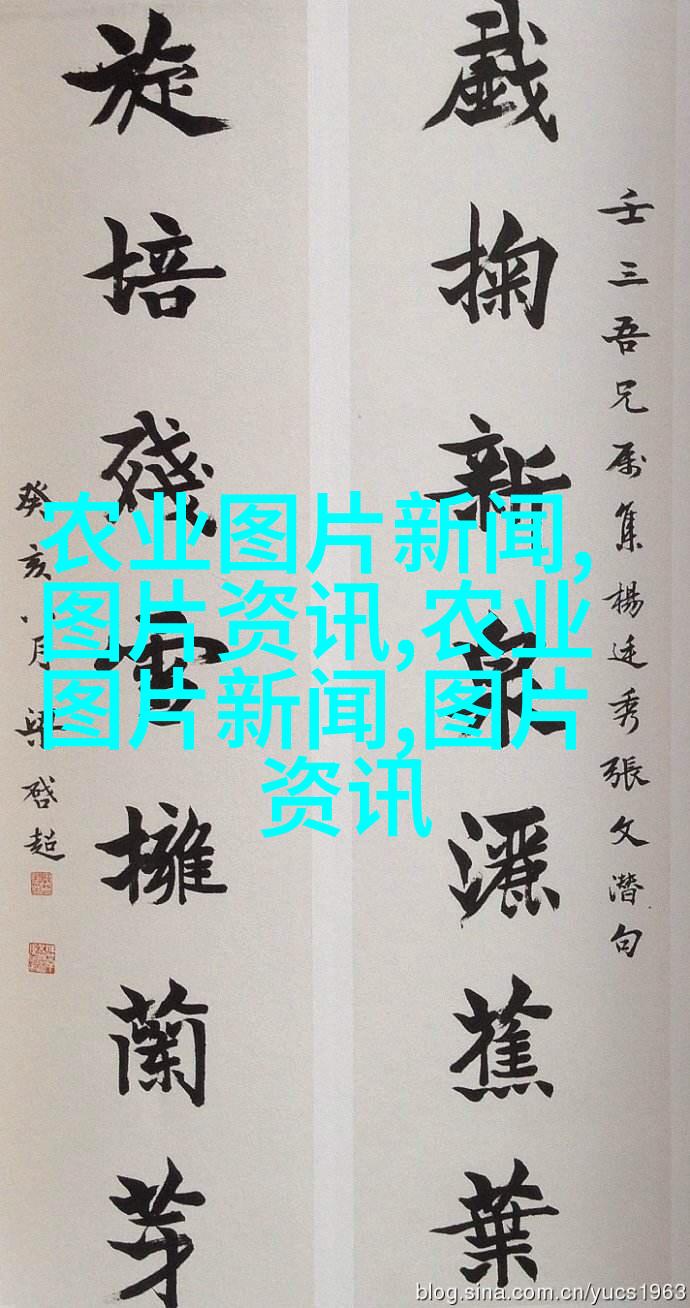 壬三吾兄属集楊廷秀張文潛句
戲掬新泉灑蕉葉
旋培殘雪擁蘭芽
癸亥八月梁啓超
农业图片新闻,
图片资讯,农业
图片新闻,图片
资讯
blog.sina.com.cn/yucs1963